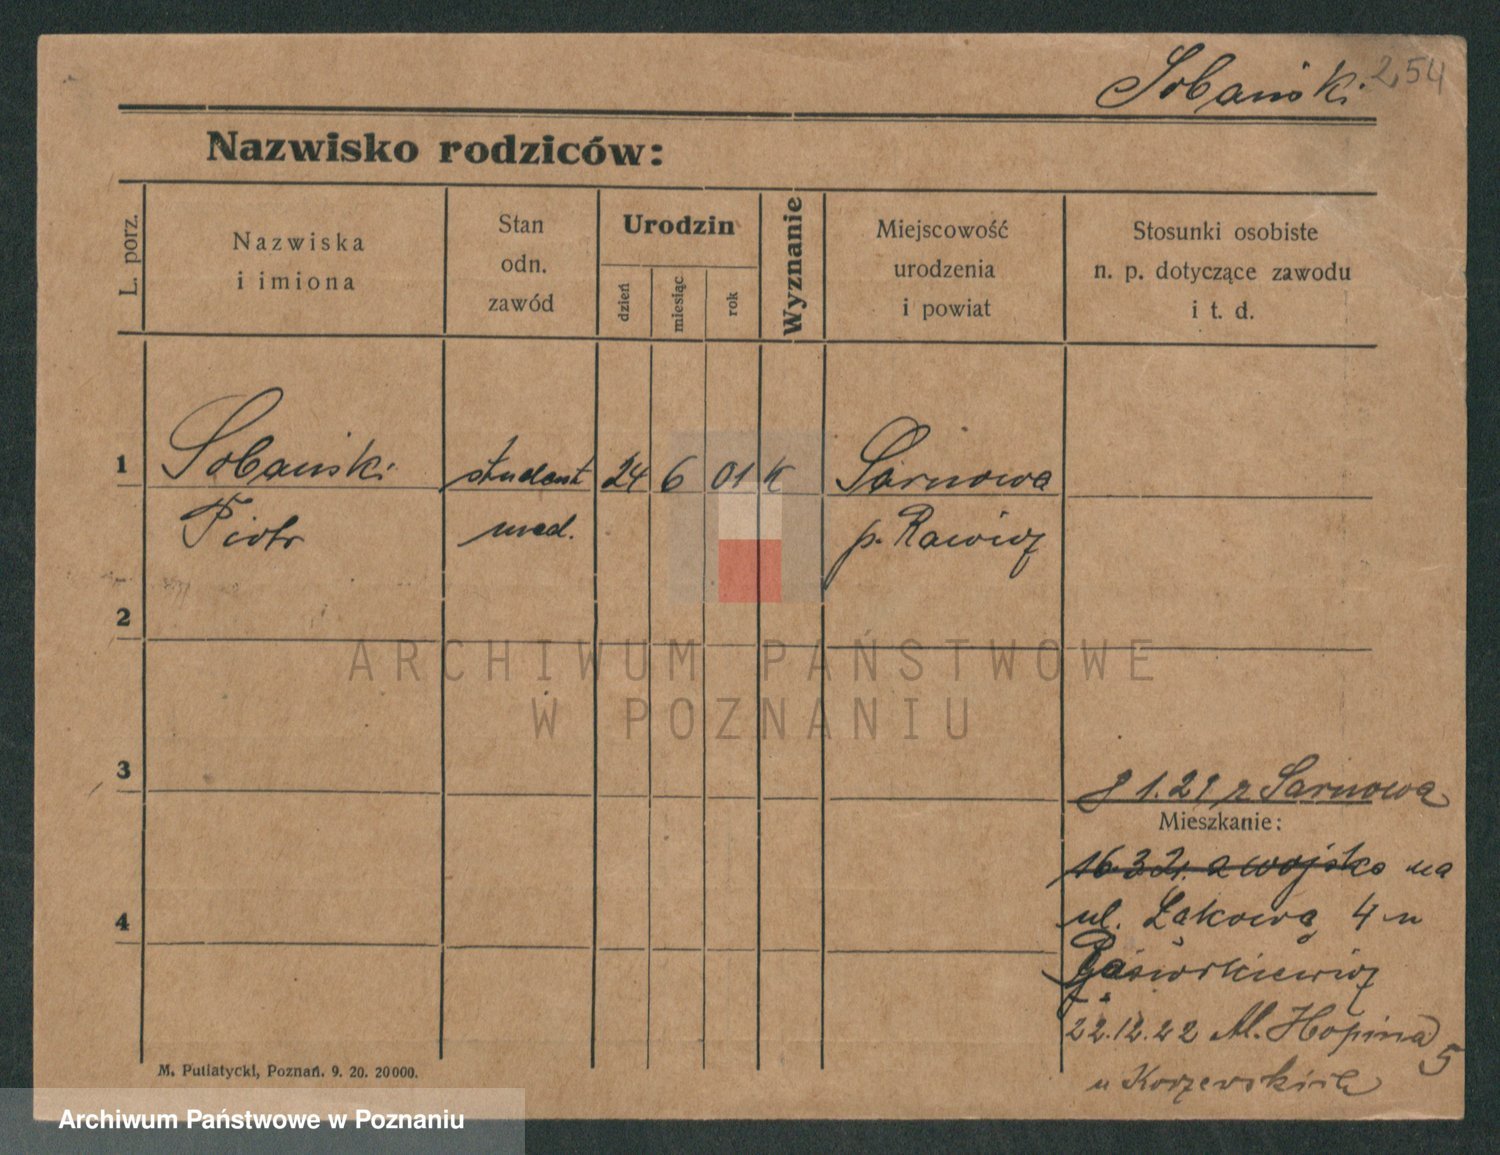 Sobański 2,54
Nazwisko rodziców:
L. porz.
Nazwiska
i imiona
Stan
odn.
zawód
Urodzin
dzień
miesiąc
rok
Wyznanie
Miejscowość
urodzenia
i powiat
Stosunki osobiste
n. p. dotyczące zawodu
i t. d.
1 Sobański student 24 6 01 K Sarnowa
Piotr med. p. Rawicz
2
ARCHIWUM PAŃSTWOWE
W POZNANIU
3
1.21 z Sarnowa
Mieszkanie:
16.3 21. z wojska na
4
ul. Łąkowa 4 u
22.12.22 Hopina 5
u
M. Putiatycki, Poznań. 9. 20. 20000.
Archiwum Państwowe w Poznaniu